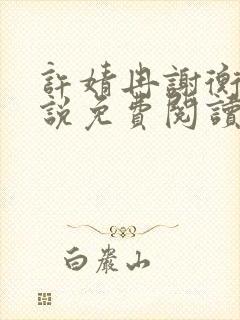 許婧冉謝衡
説免費閱讀
白巖山